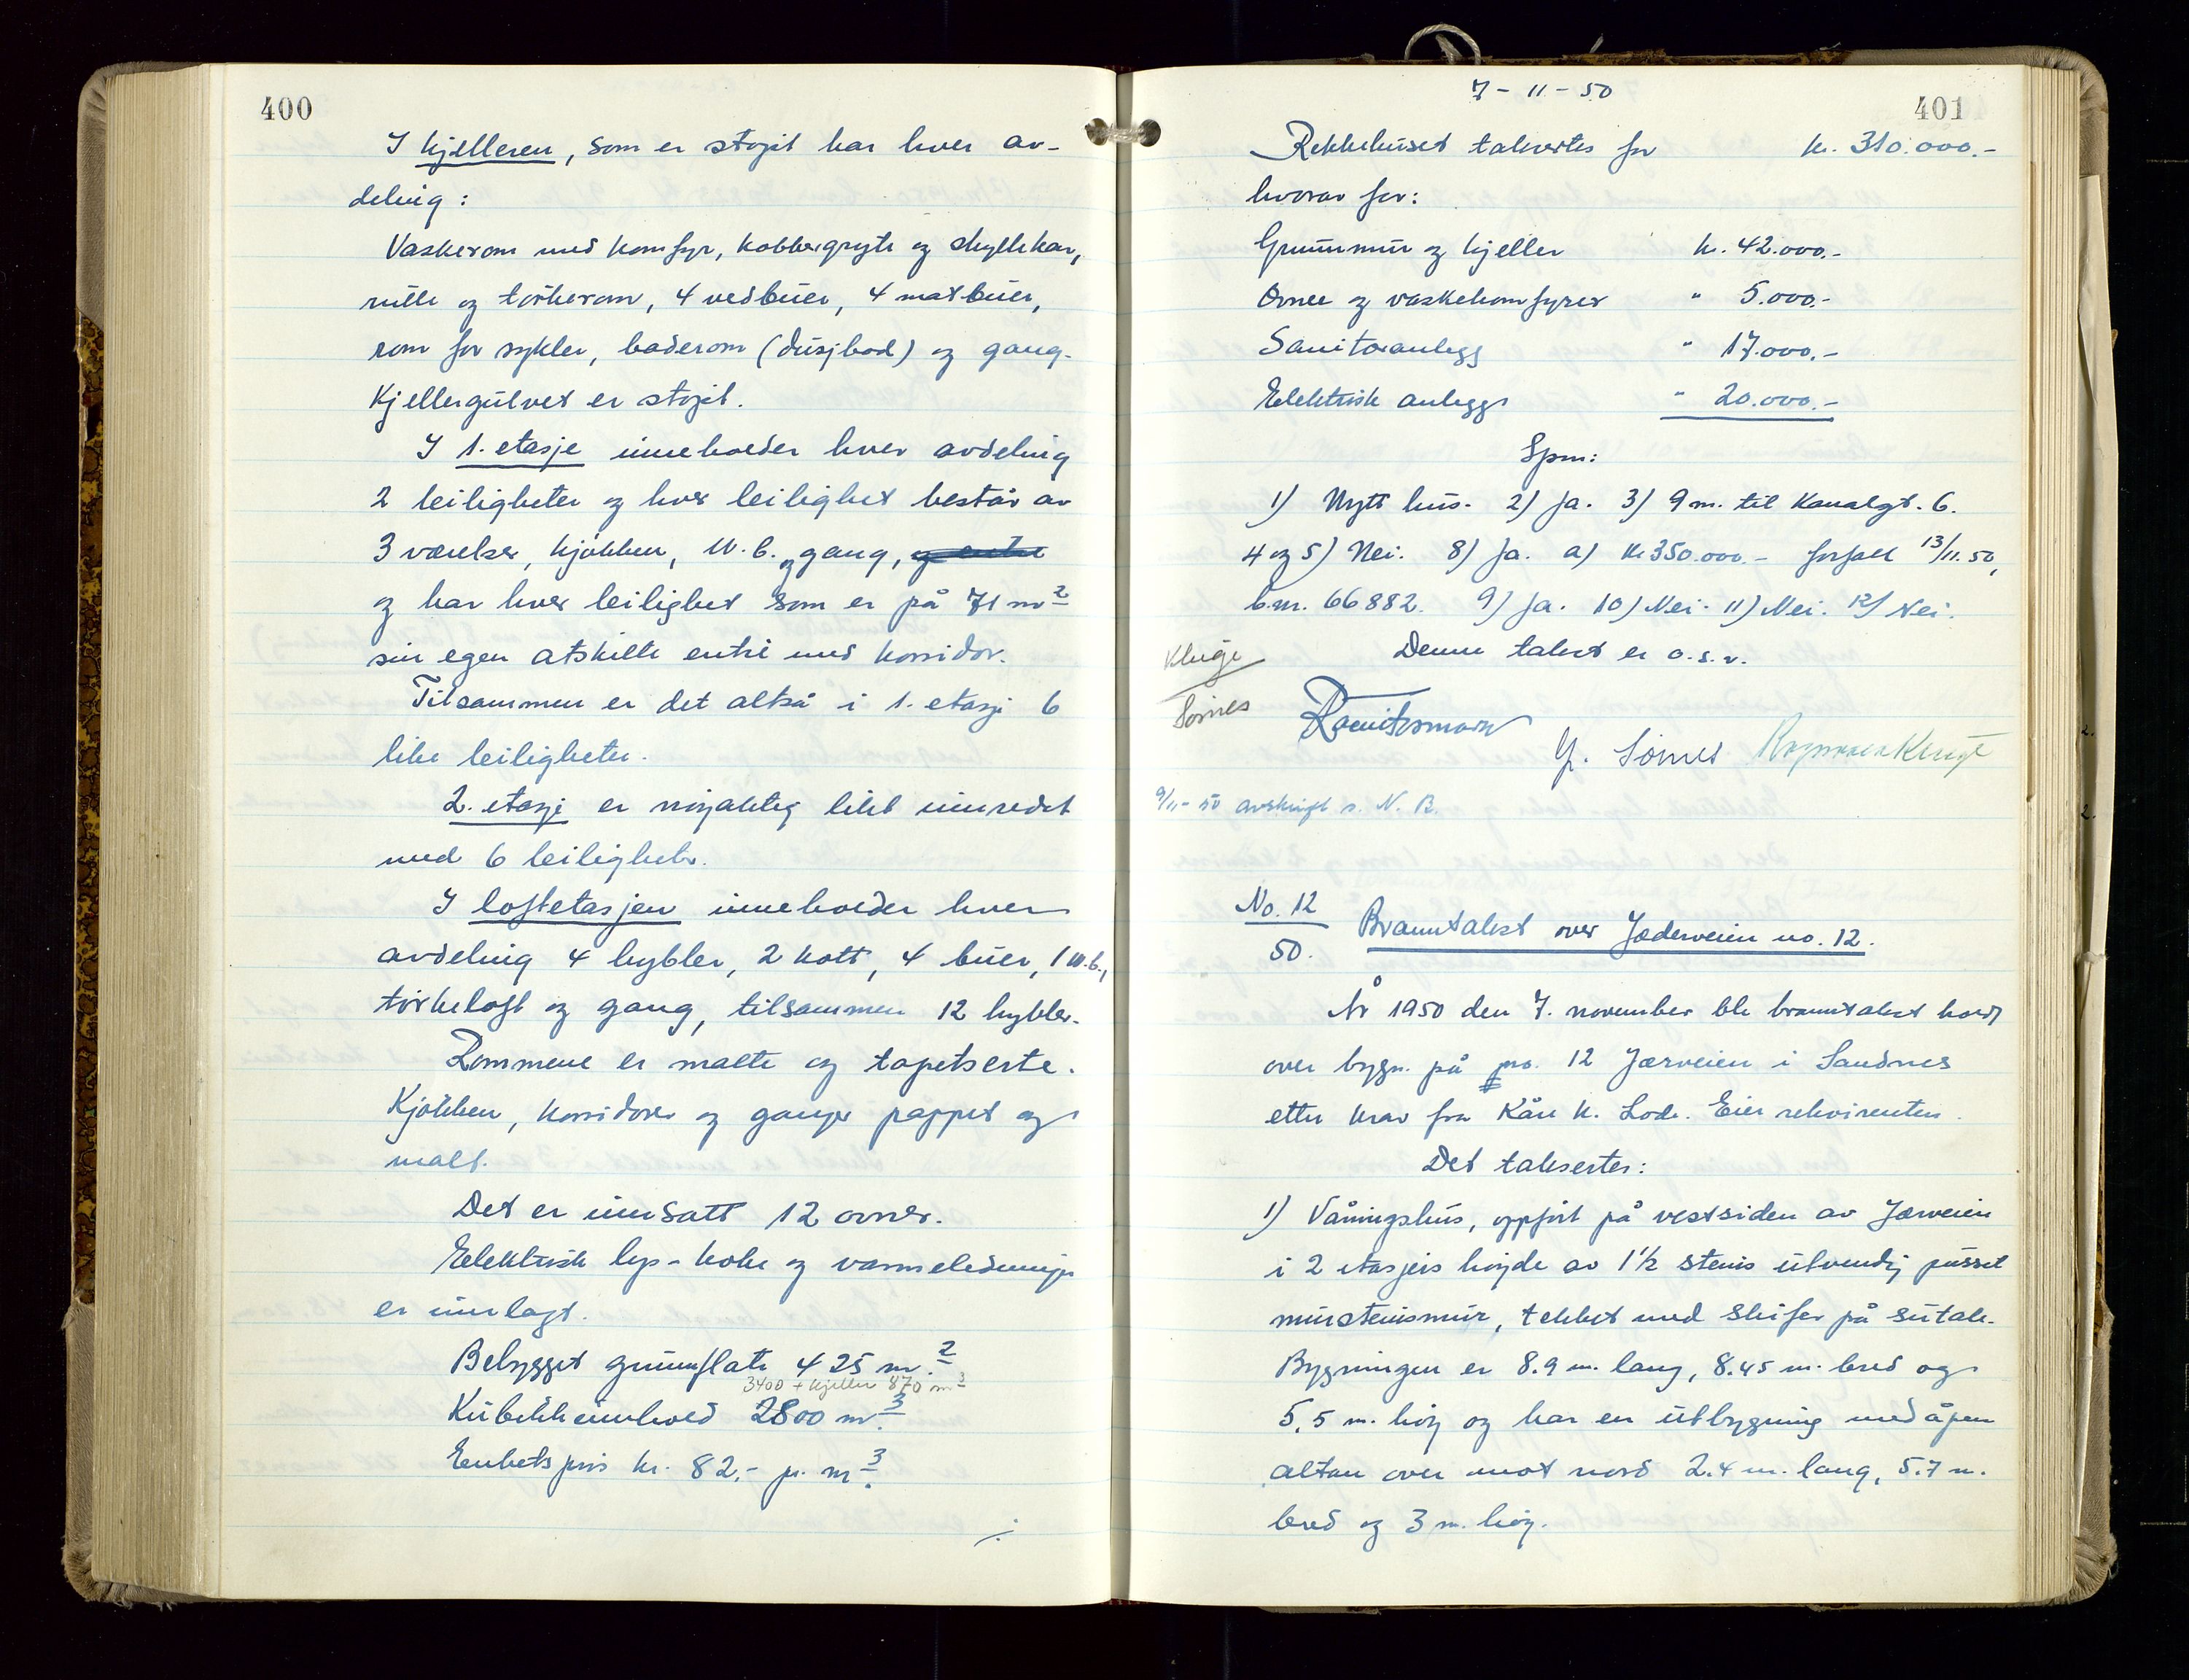 400
I kjelleren, som er støpt har hver av-
deling:
Vaskerom med komfyr, kobbergryte og skyllekar,
rulle og tørkerom, 4 vedbuer, 4 matbuer,
rom for sykler, baderom (dusjbad) og gang.
Kjellergulvet er støpt.
I 1. etasje inneholder hver avdeling
2 leiligheter og hver leilighet består av
3 værelser, kjøkken, W.C. og gang, og entre
og har hver leilighet som er på 71 m2
sin egen atskilte entre med korridor.
Tilsammen er det altså i 1. etasje 6
like leiligheter.
2. etasje er nøyaktig likt innredet
med 6 leiligheter.
I loftetasjen inneholder hver
avdeling 4 hybler, 2 kott, 4 buer, 1 W.C.,
tørkeloft og gang, tilsammen 12 hybler.
Rommene er malte og tapetserte.
Kjøkken, korridorer og ganger pappet og
malt.
Det er innsatt 12 ovner.
Elektrisk lys- koke og varmeledninger
er innlagt.
Bebygget grunnflate 425 m2.
3400 + kjeller 870 m3
Kubikkinnhold 2800 m3.
Enhetspris kr. 82,- pr. m3.
./.
7-11-50
401
Rekkehuset takseres for kr. 310.000.-
hvorav for:
Grunnmur og kjeller kr. 42.000.-
Ovner og vaskekomfyrer " 5.000.-
Sanitæranlegg " 17.000.-
Elektrisk anlegg " 20.000.-
Spm:
1) Nytt hus. 2) Ja. 3) 9 m. til Kanalgt. 6.
4 og 5) Nei. 8) Ja. a) kr 350.000.- forfall 13/11.50,
b.nr. 66882. 9) Ja. 10) Nei. 11) Nei. 12) Nei.
Denne takst er o.s.v.
Kluge
Sømes
G. Sømes
9/11-50 avskrift s. N. B.
No. 12
50.
Branntakst over Jæderveien no. 12.
År 1950 den 7. november ble branntakst holdt
over bygn. på no. 12 Jærveien i Sandnes
etter krav fra Kåre K. Lode. Eier rekvirenten.
Det takseres:
1) Våningshus, oppført på vestsiden av Jærveien
i 2 etasjers høyde av 1 1/2 stens utvendig pusset
murstensmur, tekket med skifer på sutak.
Bygningen er 8.9 m. lang, 8.45 m. bred og
5.5 m. høy og har en utbygning med åpen
altan over mot nord 2.4 m. lang, 5.7 m.
bred og 3 m. høy.